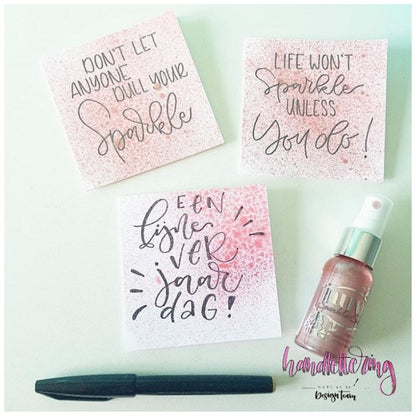 DON'T LET
ANYONE
DULL YOUR
Sparkle
LIFE WON'T
Sparkle
UNLESS
You do!
EEN
fijne
VER
jaar
DAG!
handlettering
Design Team